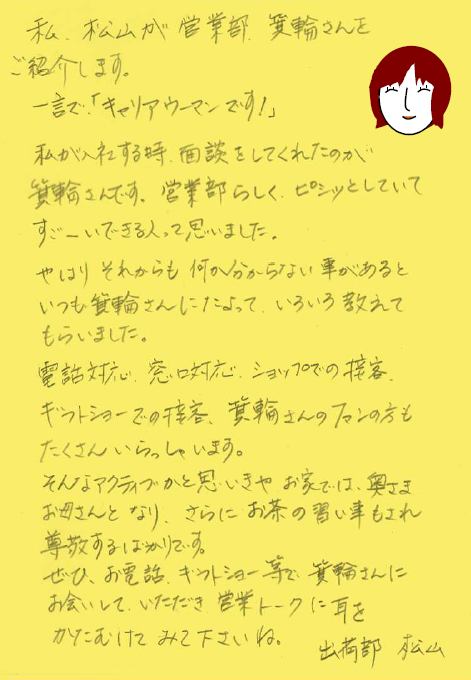 私、松山が営業部、箕輪さんを
ご紹介します。
一言で、「キャリアウーマンです!」
私が入社する時、面談をしてくれたのが
箕輪さんです。営業部らしく、ピシッとしていて
すごーいできる人って思いました。
やはりそれからも何か分からない事があると
いつも箕輪さんにたよって、いろいろ教えて
もらいました。
電話対応、窓口対応、ショップでの接客、
ギフトショーでの接客、箕輪さんのファンの方も
たくさんいらっしゃいます。
そんなアクティブかと思いきや お家では、奥さま
お母さんとなり、さらにお茶の習い事もされ
尊敬するばかりです。
ぜひ、お電話、ギフトショー等で、箕輪さんに
お会いして、いただき営業トークに耳を
かたむけてみて下さいね。
出荷部 松山